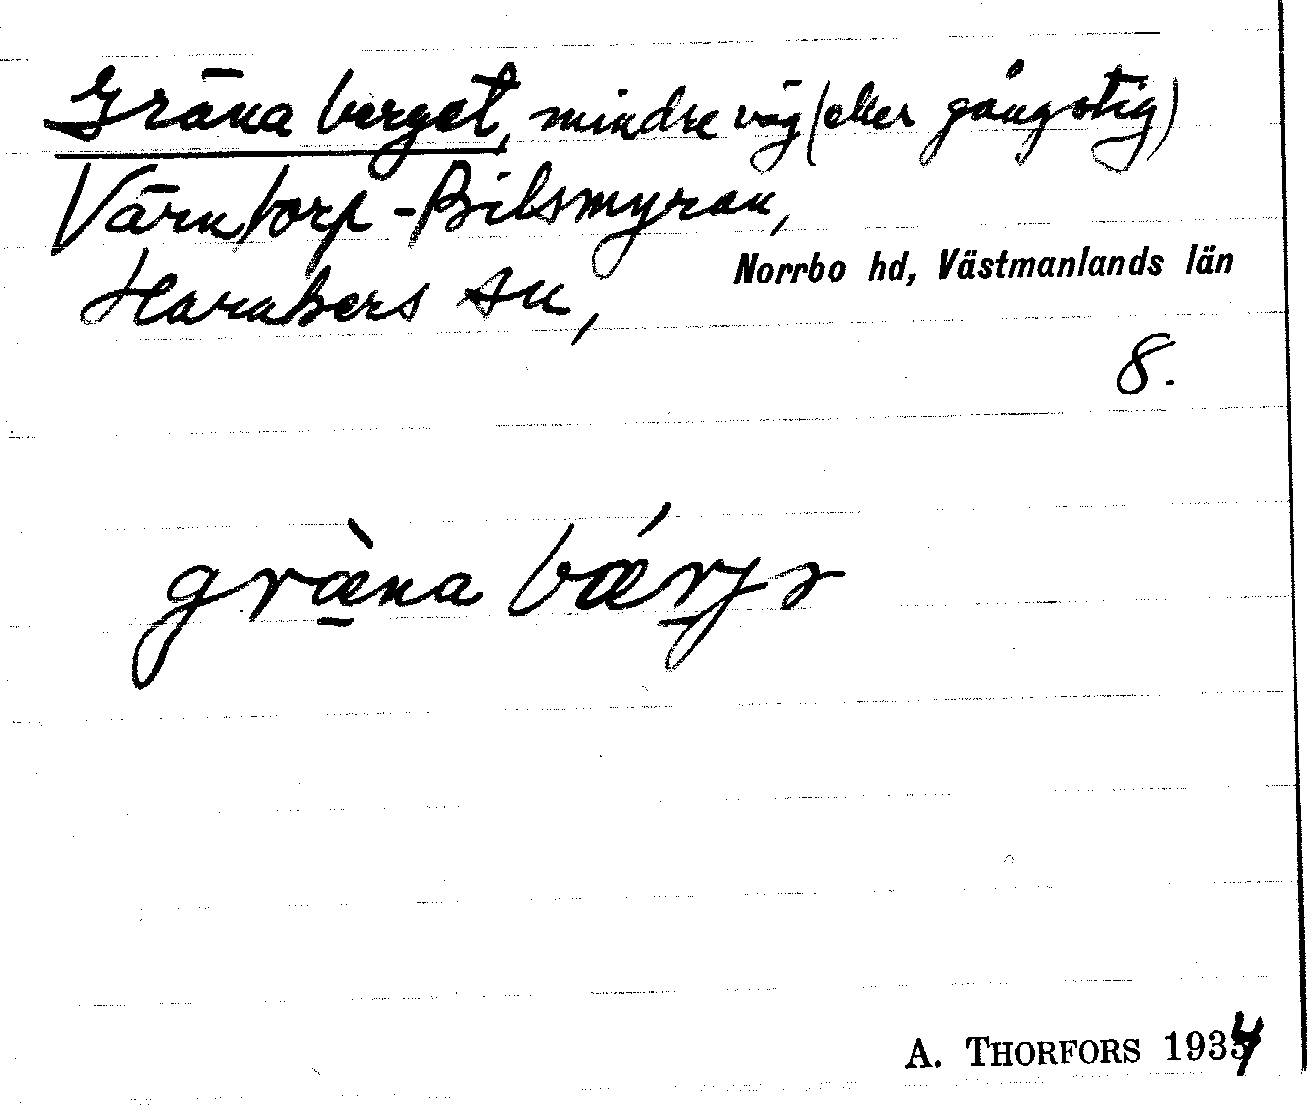 Gräna berget, mindre väg (eller gångstig)
Värntorp - Bilsmyran,
Harakers sn,
Norrbo hd, Västmanlands län
8.
græ̀na bǽrjə
A. THORFORS 1934